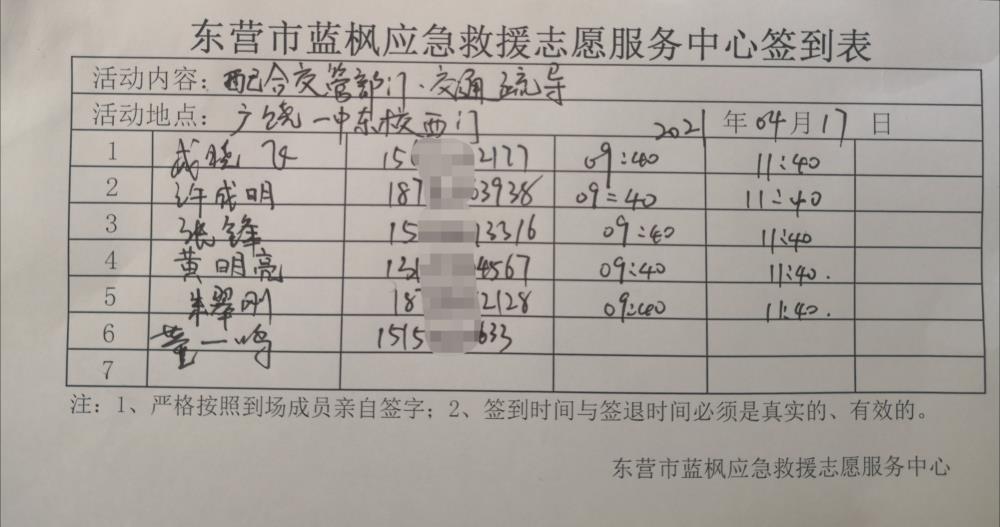 东营市蓝枫应急救援志愿服务中心签到表
活动内容：配合交管部门·交通疏导
活动地点：广饶一中东校西门 2021年04月17日
1 武晓飞 15 2177 09:40 11:40
2 许成明 187 63938 09:40 11:40
3 张锋 15 13316 09:40 11:40
4 黄明亮 131 4567 09:40 11:40.
5 朱翠刚 187 2128 09:40 11:40.
6 董一鸣 1515 633
7
注：1、严格按照到场成员亲自签字；2、签到时间与签退时间必须是真实的、有效的。
东营市蓝枫应急救援志愿服务中心